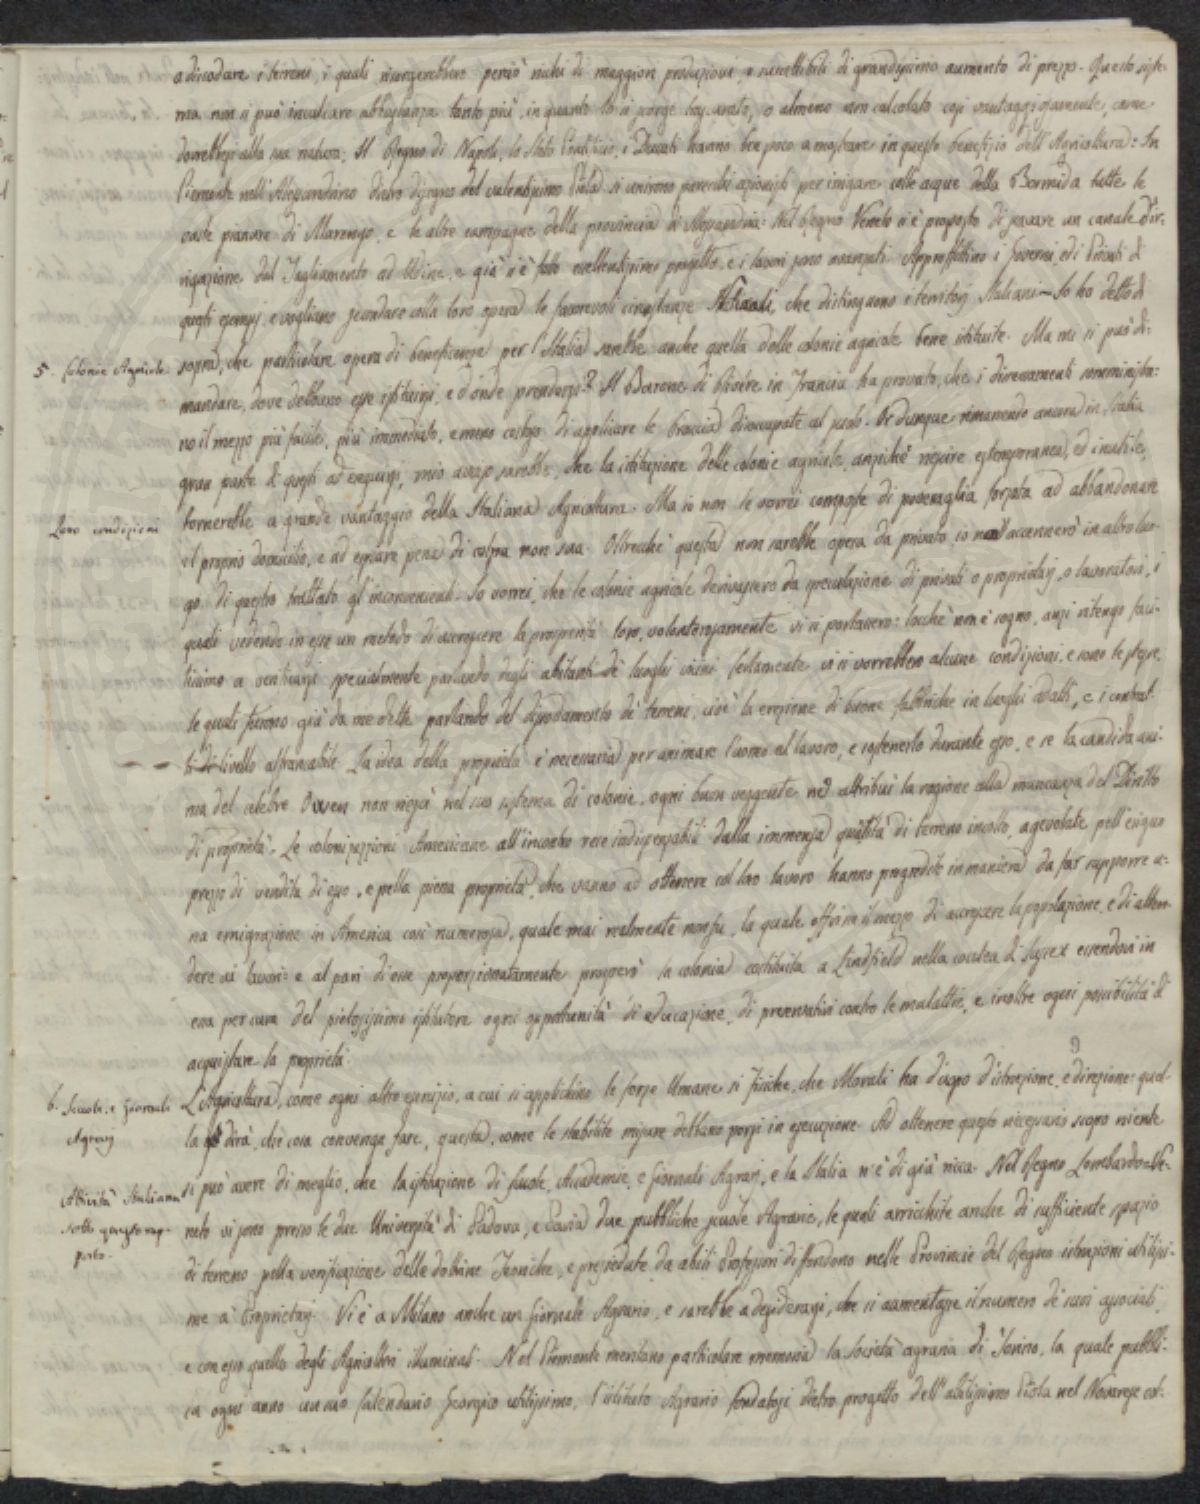 a dissodare i terreni, i quali risorgerebbero perciò ricchi di maggiore produzione, e suscettibili di grandissimo aumento di prezzo. Questo siste-
ma non si può inculcare abbastanza tanto più, in quanto lo si scorge trascurato, o almeno non calcolato così vantaggiosamente, come
dovrebbesi alla sua natura; Il Regno di Napoli, lo Stato Pontificio, i Ducati hanno ben poco a mostrare in questo benefizio dell'Agricoltura: In
Piemonte nell'Alessandrino dietro disegno del valentissimo Piola si unirono parecchi azionisti per irrigare colle acque della Bormida tutte le
vaste pianure di Marengo, e le altre campagne della provincia di Alessandria: Nel Regno Veneto si è proposto di scavare un canale d'ir-
rigazione dal Tagliamento ad Udine, e già si è fatto eccellentissimo progetto, e i lavori sono avanzati. Approfittino i Governi, ed i Privati di
questi esempj, e vogliano secondare colla loro opera le favorevoli circostanze Naturali, che distinguono i territorj Italiani — Io ho detto di
5. Colonie Agricole.
sopra, che particolare opera di beneficenza per l'Italia sarebbe anche quella delle colonie agricole bene istituite. Ma mi si può di-
mandare, dove debbano esse istituirsi, e d'onde prendersi? Il Barone di in Francia ha provato, che i dissodamenti somministra-
no il mezzo più facile, più immediato, e meno costoso di applicare le braccia disoccupate al suolo. Or dunque rimanendo ancora in Italia
gran parte di questi ad eseguirsi, mio avviso sarebbe, che la istituzione delle colonie agricole, anzichè riescire estemporanea, ed inutile,
tornerebbe a grande vantaggio della Italiana Agricoltura. Ma io non le vorrei composte di poveraglia forzata ad abbandonare
Loro condizioni
il proprio domicilio, e ad espiare pena di colpa non sua. Oltrecchè questa non sarebbe opera da privato, io accennerò in altro luo-
go di questo trattato gl'inconvenienti. Io vorrei, che le colonie agricole derivassero da speculazione di privati o proprietarj, o lavoratori, i
quali vedendo in esse un metodo di accrescere la prosperità loro, volonterosamente vi si portassero: locchè non è sogno, anzi ritengo faci-
lissimo a verificarsi specialmente parlando degli abitanti de' luoghi vicini. Certamente vi si vorrebbero alcune condizioni, e sono le stesse,
le quali furono già da me dette parlando del dissodamento de' terreni, cioè la erezione di buone fabbriche in luoghi adatti, e i contrat-
ti di livello affrancabile. La idea della proprietà è necessaria per animare l'uomo al lavoro, e sostenerlo durante esso, e se la candida ani-
ma del celebre Owen non riescì nel suo sistema di colonie, ogni buon veggente ne attribuì la ragione alla mancanza del Diritto
di proprietà. Le colonizzazioni Americane all'incontro rese indispensabili dalla immensa quantità di terreno incolto, agevolate pell'esiguo
prezzo di vendita di esso, e pella piena proprietà, che vanno ad ottenere col loro lavoro hanno progredito in maniera da far supporre u-
na emigrazione in America così numerosa, quale mai realmente non fu, la quale offrisse il mezzo di accrescere la popolazione, e di atten-
dere ai lavori: e al pari di esse proporzionatamente prosperò la colonia costituita a Lindfield nella contea di Sussex essendovi in
essa per cura del pietosissimo istitutore ogni opportunità di educazione, di preservativi contro le malattie, e inoltre ogni possibilità di
acquistare la proprietà.
6. Scuole, e Giornali
Agrarj
L'Agricoltura, come ogni altro esercizio, a cui si applichino le forze Umane sì Fisiche, che Morali ha d'uopo d'istruzione, e direzione: quel-
la dirà, che cosa convenga fare, questa, come le stabilite misure debbano porsi in esecuzione. Ad ottenere questo necessario scopo niente
Attività Italiana
sotto questo rap-
porto.
si può avere di meglio, che la istituzione di Scuole, Accademie, e Giornali Agrarj, e la Italia n'è di già ricca. Nel Regno Lombardo-Ve-
neto vi sono presso le due Università di Padova, e Pavia due pubbliche scuole Agrarie, le quali arricchite anche di sufficiente spazio
di terreno pella verificazione delle dottrine Teoriche, e presiedute da abili Professori diffondono nelle Provincie del Regno istruzioni utilissi-
me a' Proprietarj. Vi è a Milano anche un Giornale Agrario, e sarebbe a desiderarsi, che si aumentasse il numero de' suoi associati,
e con esso quello degli Agricoltori illuminati. Nel Piemonte meritano particolare memoria la Società agraria di Torino, la quale pubbli-
ca ogni anno un suo Calendario Georgico utilissimo, l'istituto Agrario fondatosi dietro progetto dell'abilissimo Piola nel Novarese col-